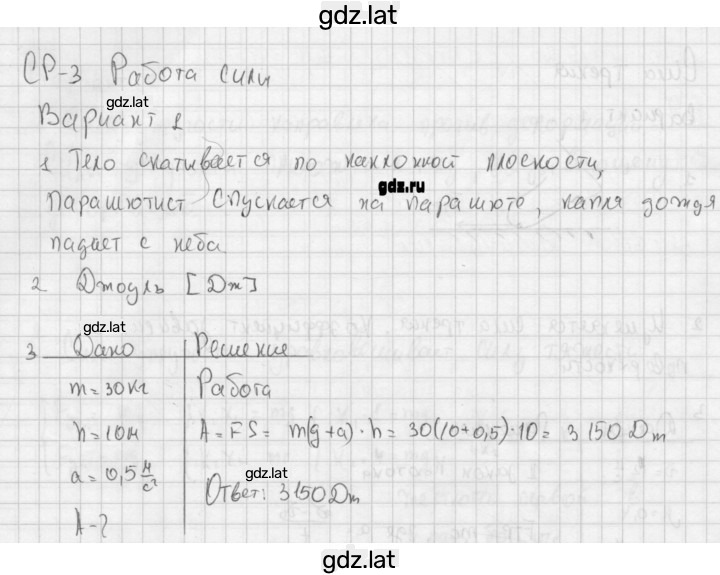 gdz.lat
СР-3 Работа силы
gdz.lat
Вариант 1
1 Тело скатывается по наклонной плоскости,
gdz.ru
Парашютист спускается на парашюте, капля дождя
падает с неба
2 Джоуль [Дж]
gdz.lat
3 Дано Решение
m=30кг Работа
h=10м A=FS= m(g+a)·h= 30(10+0,5)·10= 3150 Дж
gdz.lat
a=0,5 м/с² Ответ: 3150 Дж
A-?
gdz.lat
gdz.lat